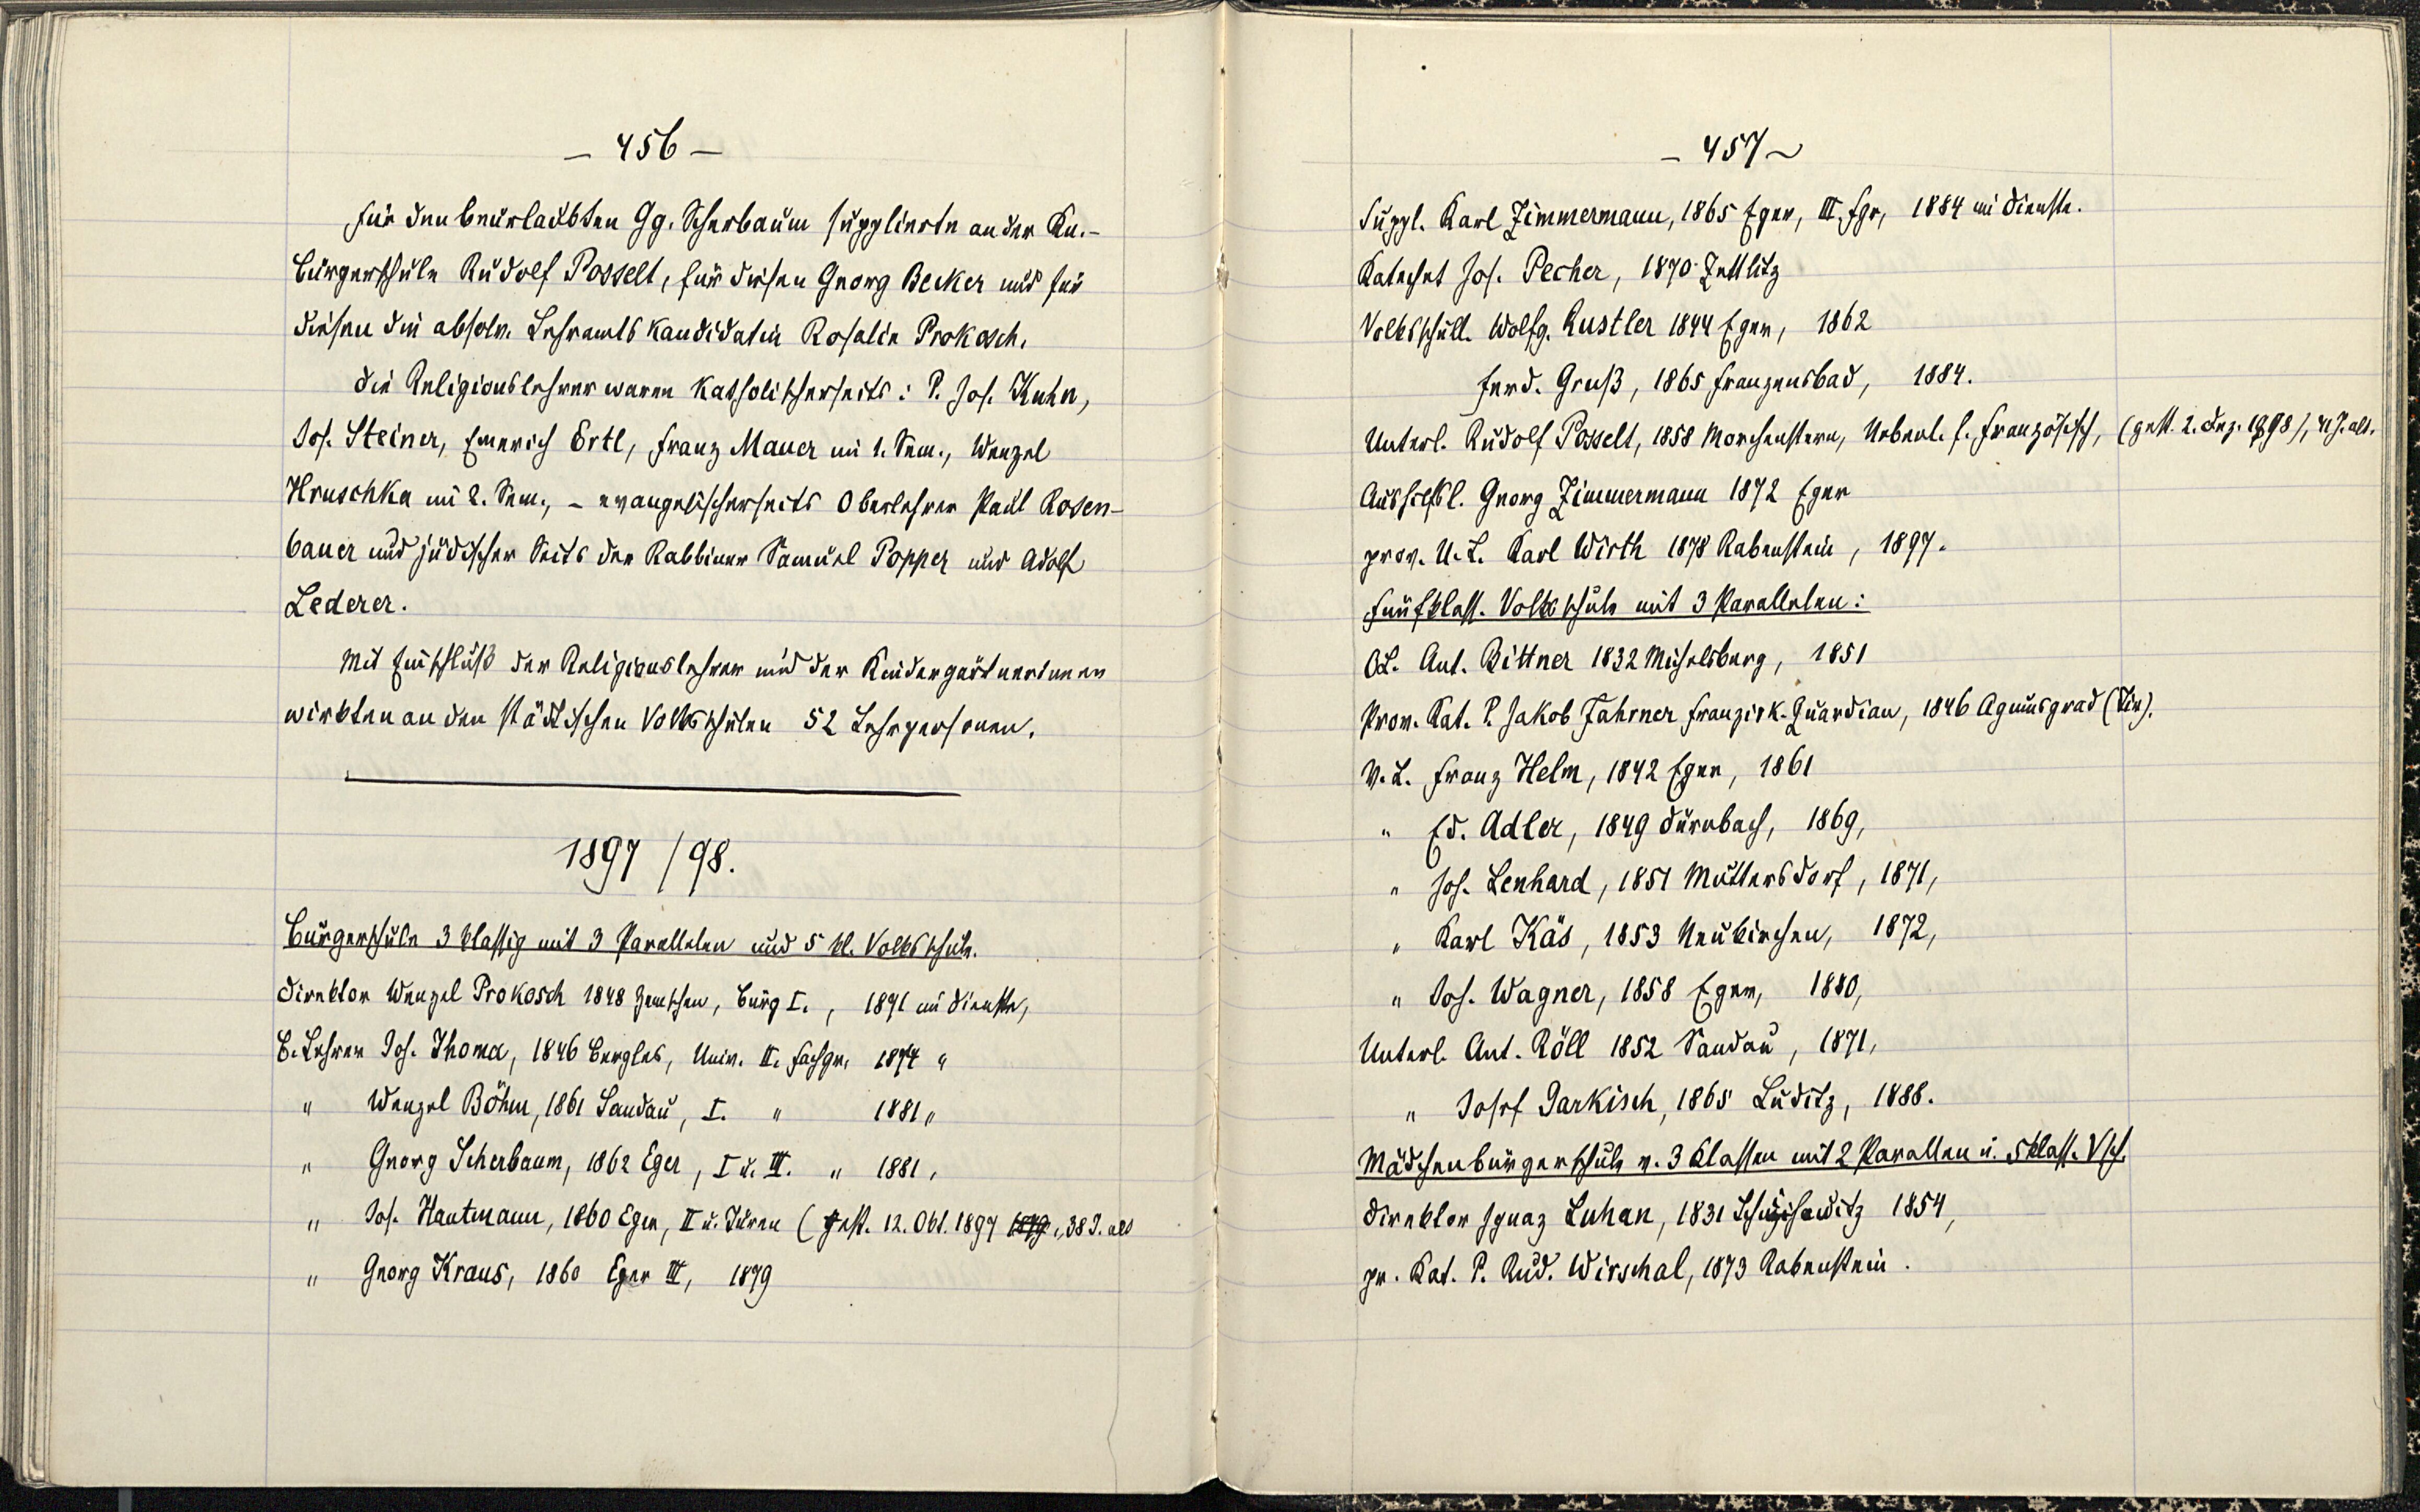 – 456 –
Für den beurlaubten Gg. Scherbaum supplierte an der Kn.-
Bürgerschule Rudolf Posselt, für diesen Georg Becker und für
diesen die absolv. Lehramtskandidatin Rosalie Prokosch.
Die Religionslehrer waren katholischerseits: P. Jos. Kuhn,
Jos. Steiner, Emerich Ertl, Franz Mauer im 1. Sem., Wenzel
Hruschka im 2. Sem., – evangelischerseits Oberlehrer Paul Rosen-
bauer und jüdischer Seits der Rabbiner Samuel Popper und Adolf
Lederer.
Mit Einschluß der Religionslehrer und der Kindergärtnerinnen
wirkten an den städtischen Volksschulen 52 Lehrpersonen.
1897/98.
Bürgerschule 3 klassig mit 3 Parallelen und 5 kl. Volksschule.
Direktor Wenzel Prokosch 1848 Zemschen, Bürg I., 1871 im Dienste,
B. Lehrer Jos. Thoma, 1846 Bergles, Univ. II. Fachgr. 1874 "
" Wenzel Böhm, 1861 Sandau, I. " 1881 "
" Georg Scherbaum, 1862 Eger, I u. III. " 1881,
" Jos. Hautmann, 1860 Eger, II u. Turnen (gest. 12. Okt. 1897 1879, 38 J. alt
" Georg Kraus, 1860 Eger III, 1879
– 457 –
Suppl. Karl Zimmermann, 1865 Eger, III. Fgr, 1884 im Dienste.
Katechet Jos. Pecher, 1870 Zettlitz
Volksschull. Wolfg. Rustler 1844 Eger, 1862
Ferd. Gruß, 1865 Franzensbad, 1884.
Unterl. Rudolf Posselt, 1858 Morchenstern, Nebenl. f. Französisch, (gest. 2. Dez. 1898), 41 J. alt.
Aushilfsl. Georg Zimmermann 1872 Eger
prov. U. L. Karl Wirth 1878 Rabenstein, 1897.
Fünfklass. Volksschule mit 3 Parallelen:
OL. Ant. Bittner 1832 Michelsberg, 1851
Prov. Kat. P. Jakob Fahrner Franzisk. Guardian, 1846 (Tir).
V. L. Franz Helm, 1842 Eger, 1861
" Ed. Adler, 1849 Dürnbach, 1869,
" Jos. Lenhard, 1851 Muttersdorf, 1871,
" Karl Käs, 1853 Neukirchen, 1872,
" Jos. Wagner, 1858 Eger, 1880,
Unterl. Ant. Röll 1852 Sandau, 1871,
" Josef Jarkisch, 1865 Luditz, 1888.
Mädchenbürgerschule v. 3 Klassen mit 2 Parallen u. 5klass. Vsch.
Direktor Ignaz Luhan, 1831 1854,
pr. Kat. P. Rud. Wirschal, 1873 Rabenstein.